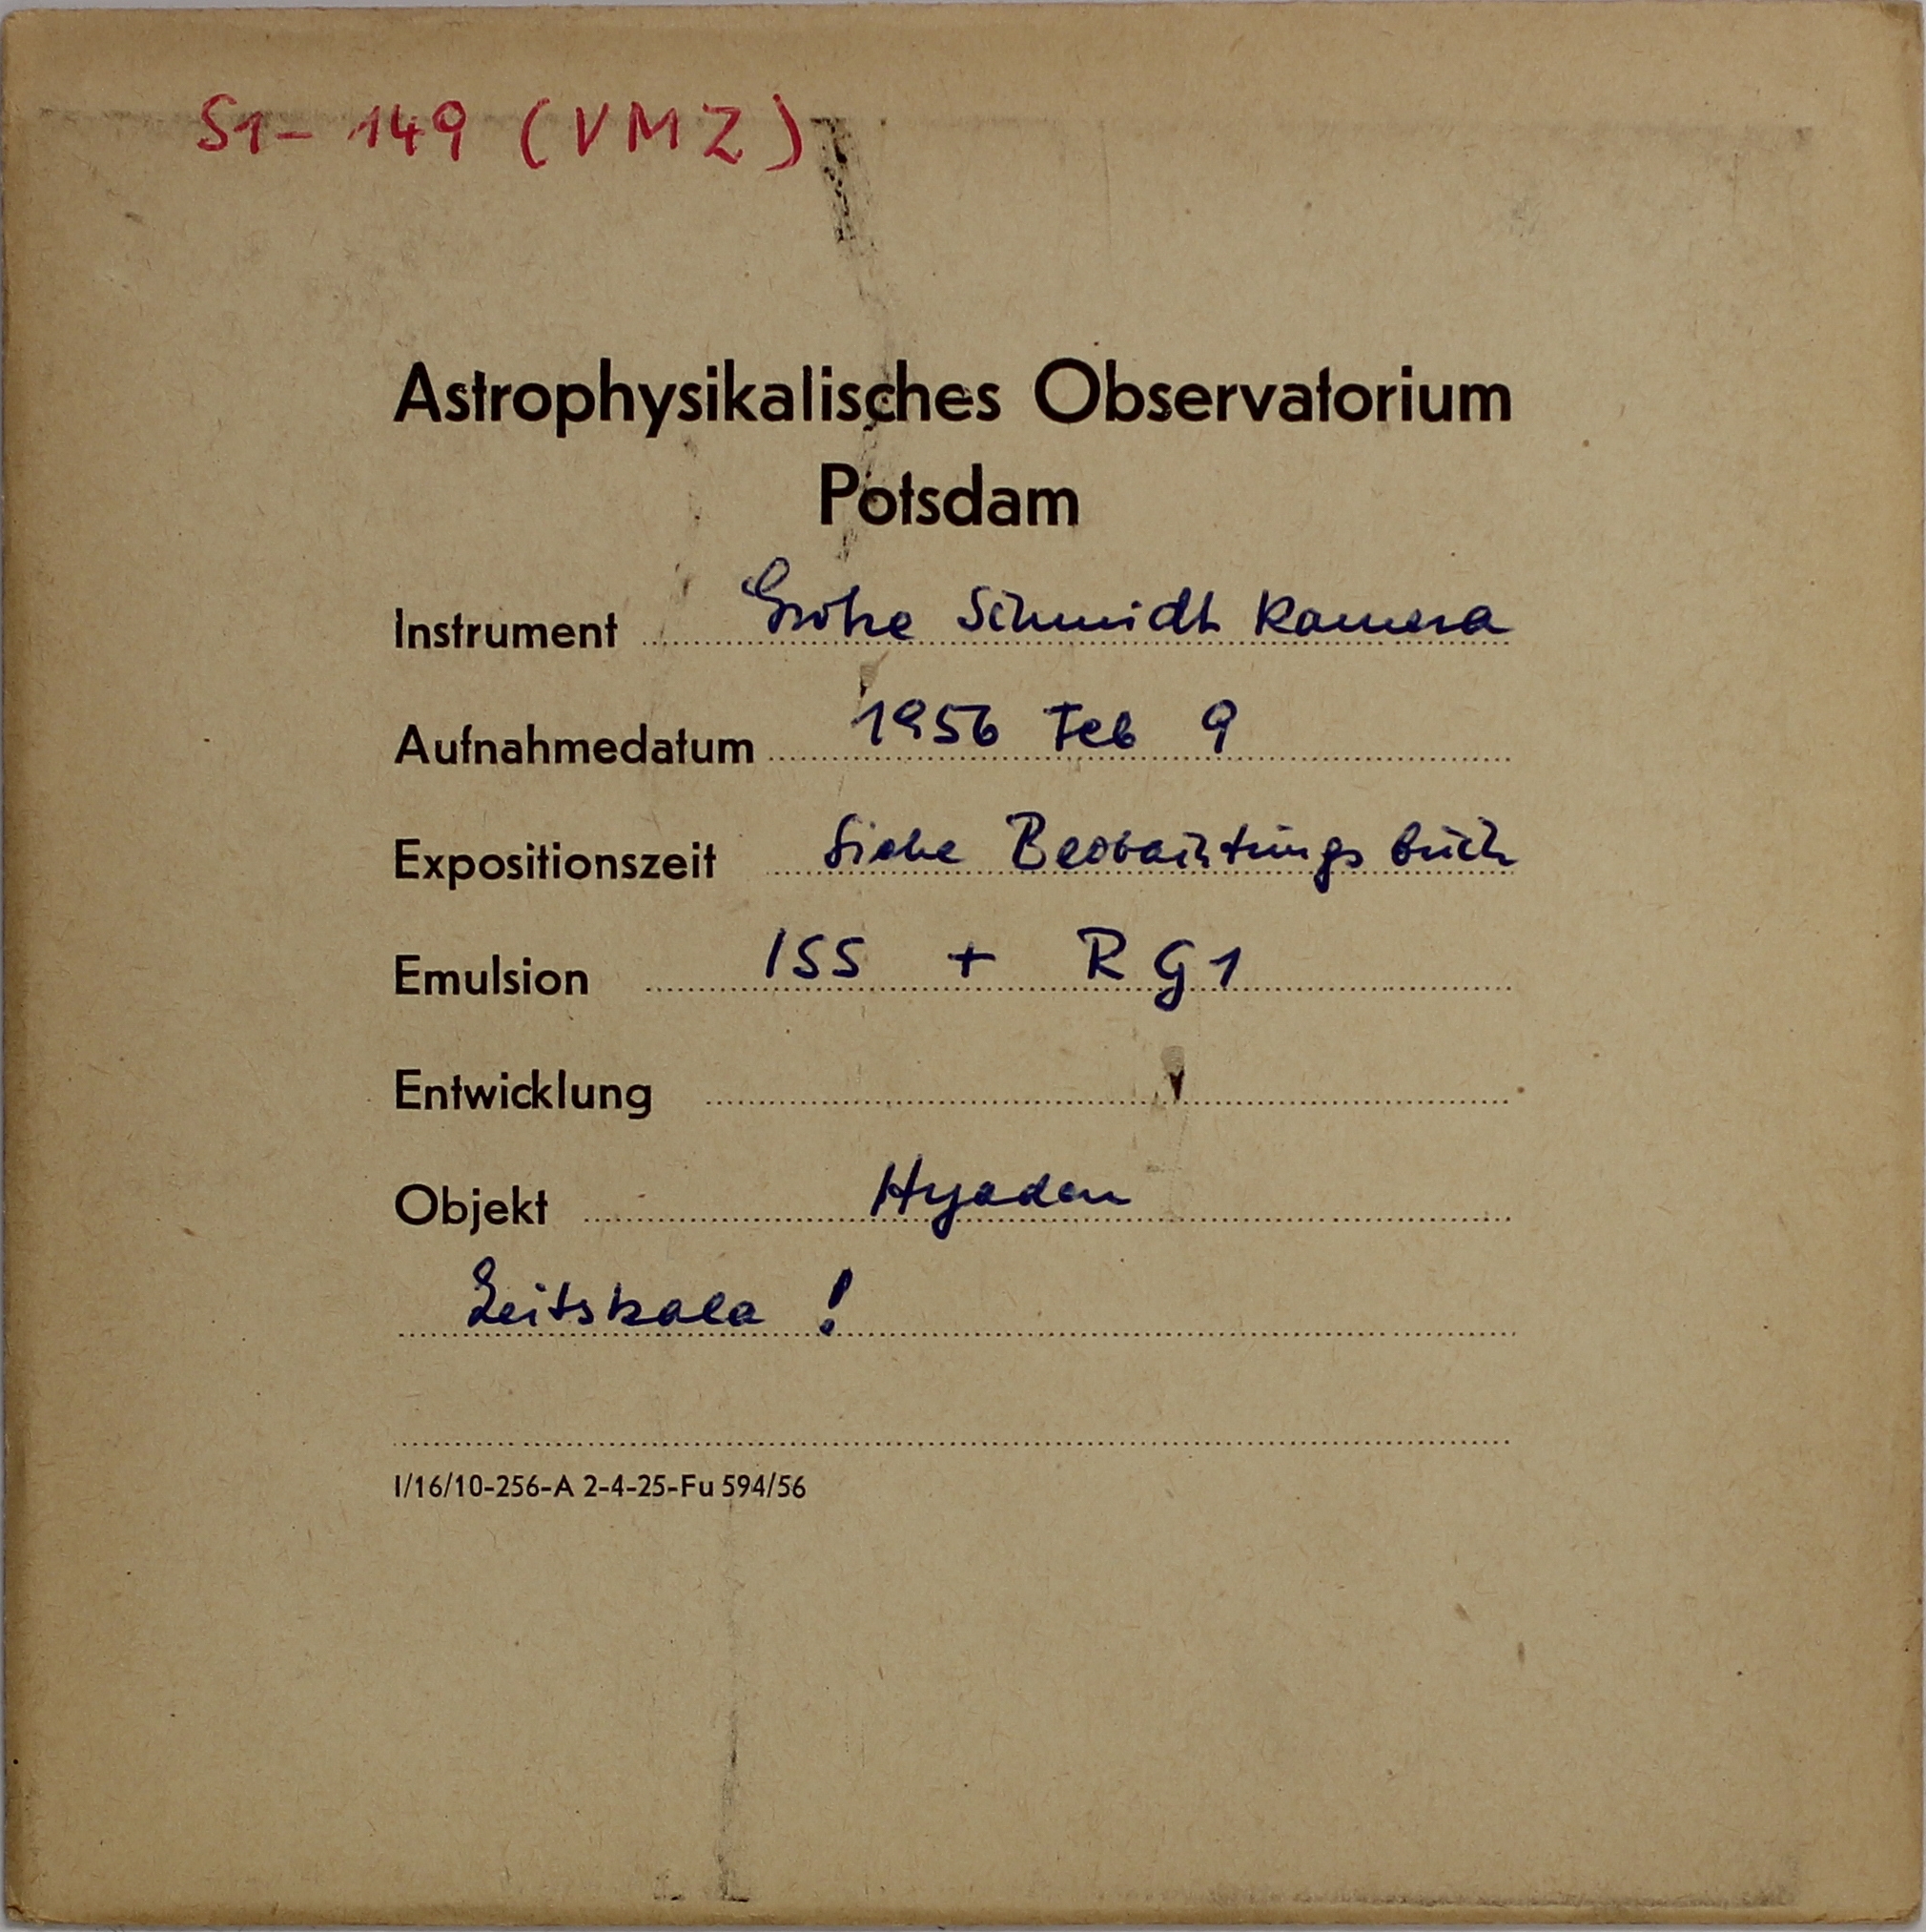 S1- 149 (VMZ)
Astrophysikalisches Observatorium
Potsdam
Instrument Große Schmidt Kamera
Aufnahmedatum 1956 Feb 9
Expositionszeit Siehe Beobachtungsbuch
Emulsion ISS + RG1
Entwicklung
Objekt Hyaden
Zeitskala !
I/16/10-256-A 2-4-25-Fu 594/56